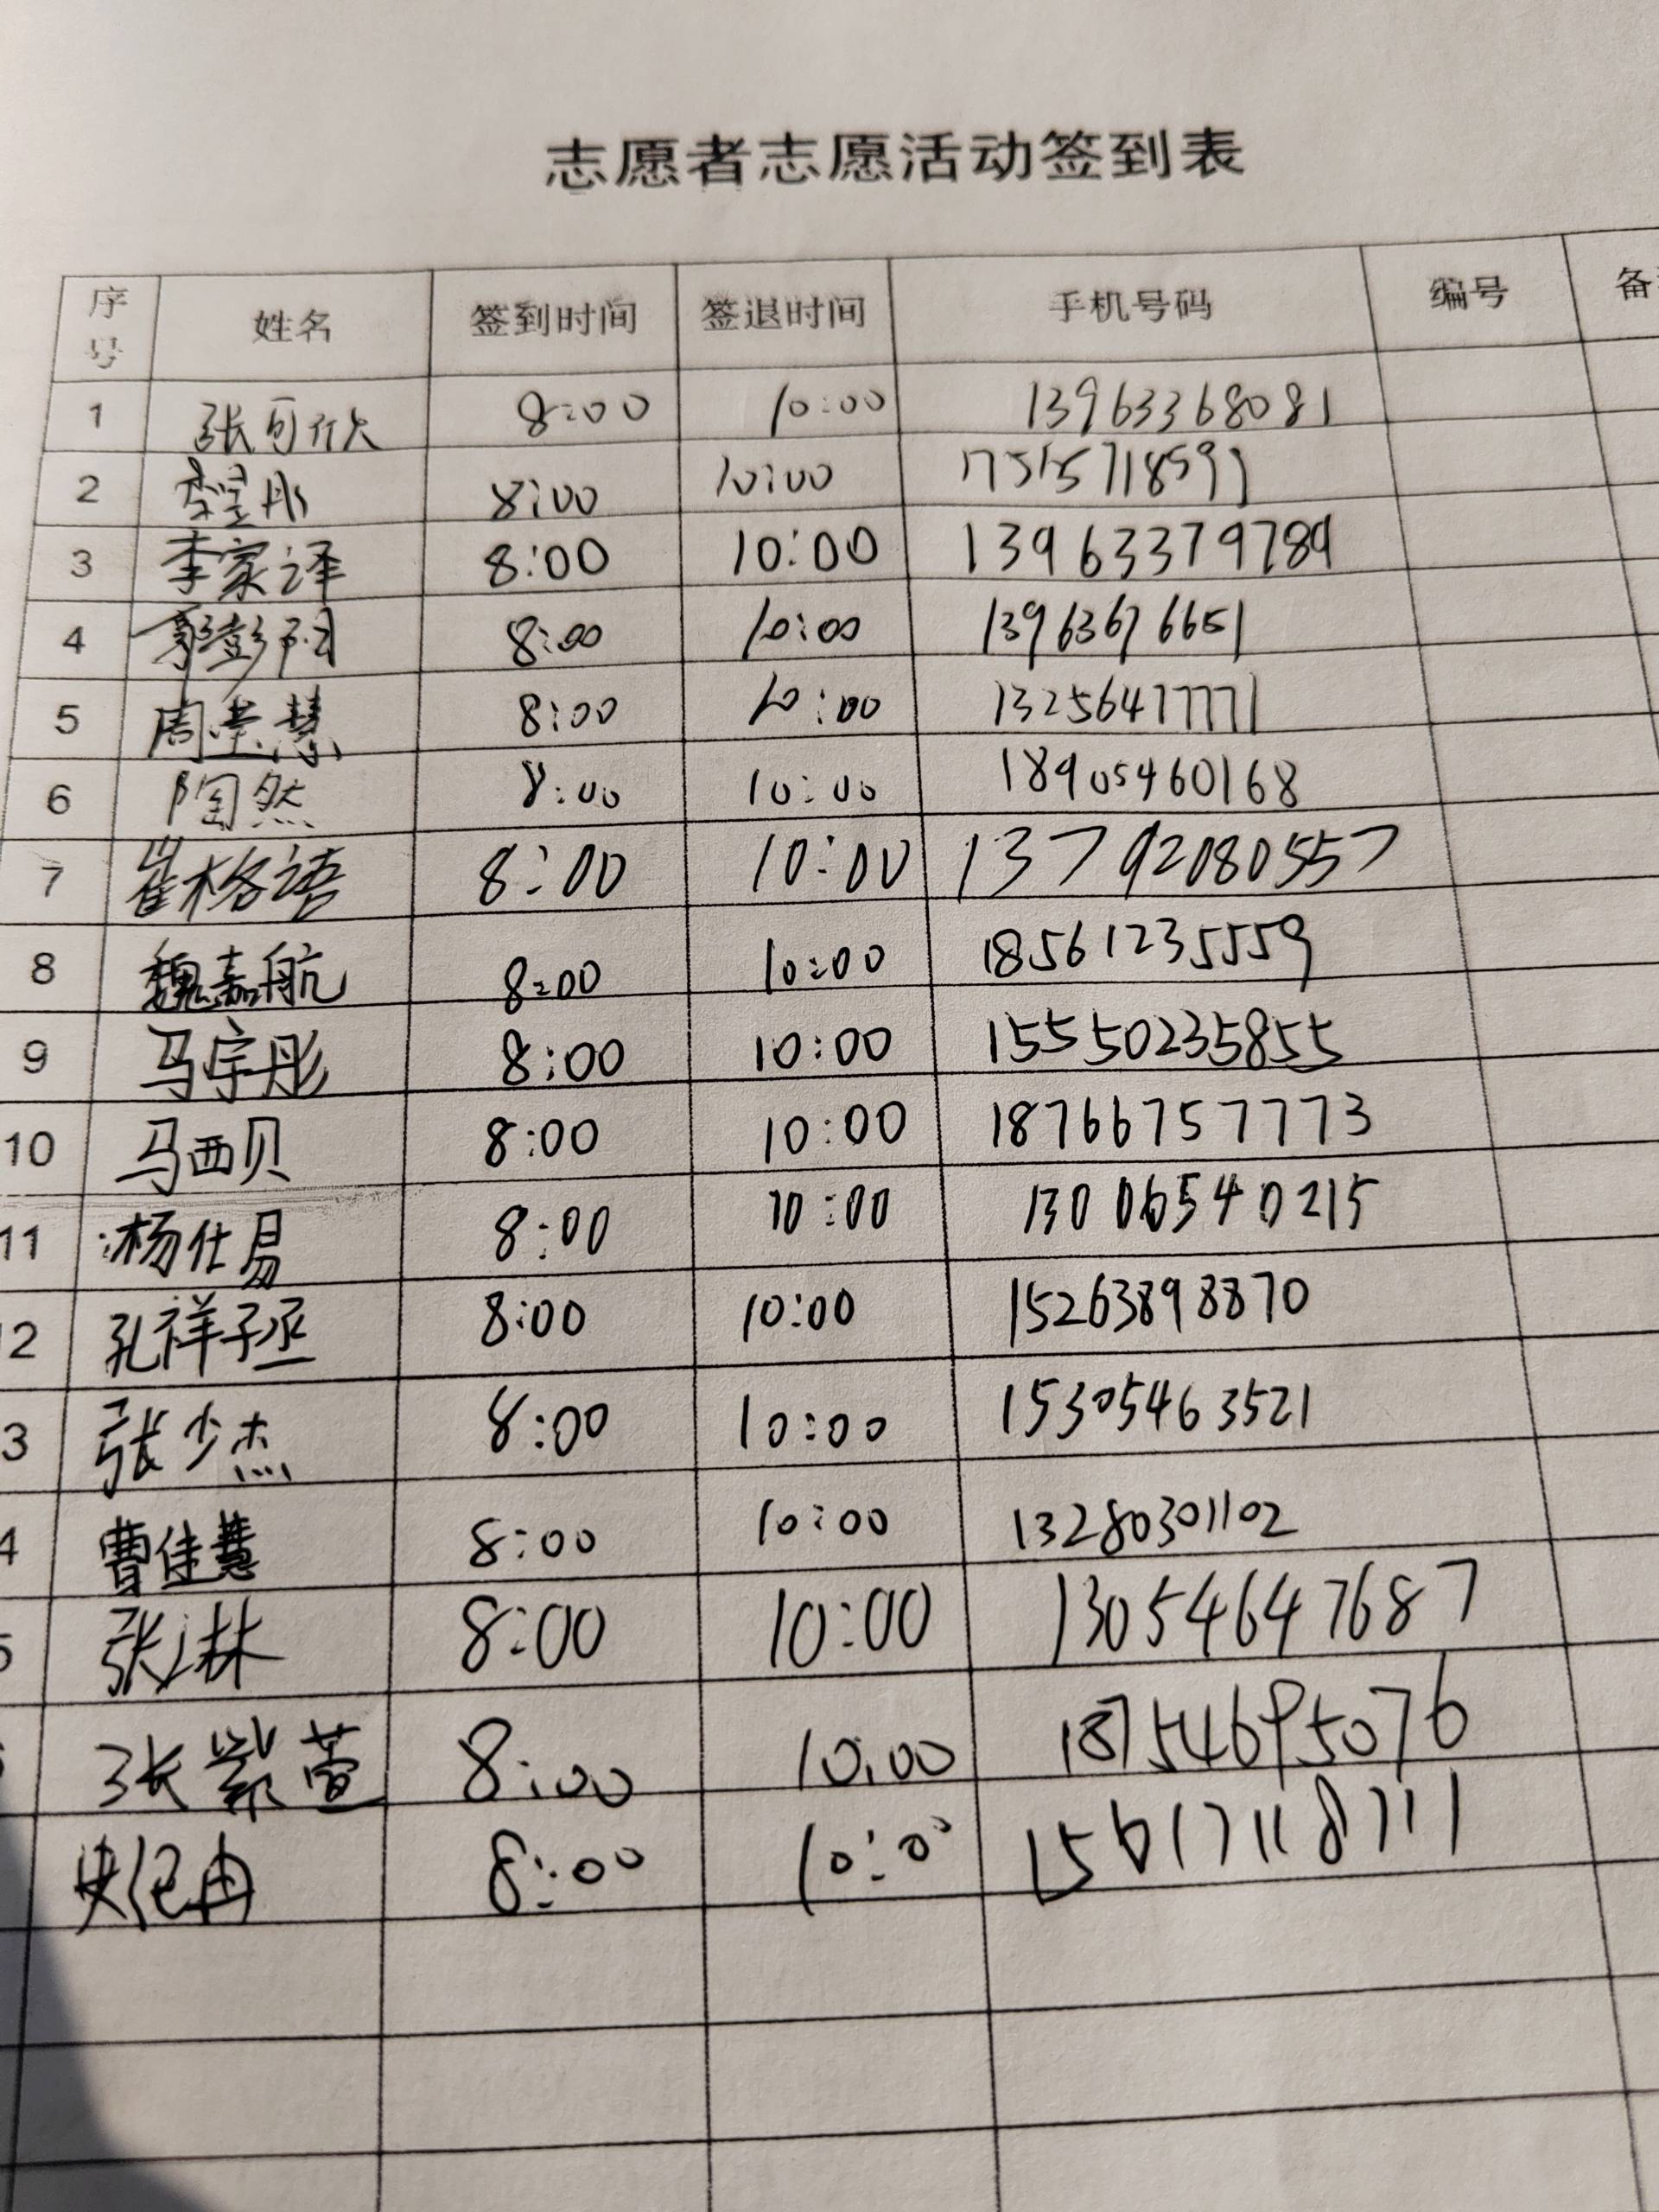 志愿者志愿活动签到表
序号 姓名 签到时间 签退时间 手机号码 编号 备
1 张可欣 8:00 10:00 13963368081
2 李昱彤 8:00 10:00 17515718599
3 李家译 8:00 10:00 13963379789
4 郭彭阳 8:00 10:00 13963676651
5 周芸慧 8:00 10:00 13256477771
6 陶然 8:00 10:00 18905460168
7 崔格语 8:00 10:00 13792080557
8 魏嘉航 8:00 10:00 18561235559
9 马宇彤 8:00 10:00 15550235855
10 马西贝 8:00 10:00 18766757773
11 杨仕易 8:00 10:00 13006540215
2 孔祥子丞 8:00 10:00 15263898870
3 张少杰 8:00 10:00 15305463521
4 曹佳慧 8:00 10:00 13280301102
5 张淋 8:00 10:00 13054647687
张紫萱 8:00 10:00 18754695076
8:00 10:00 15617118711